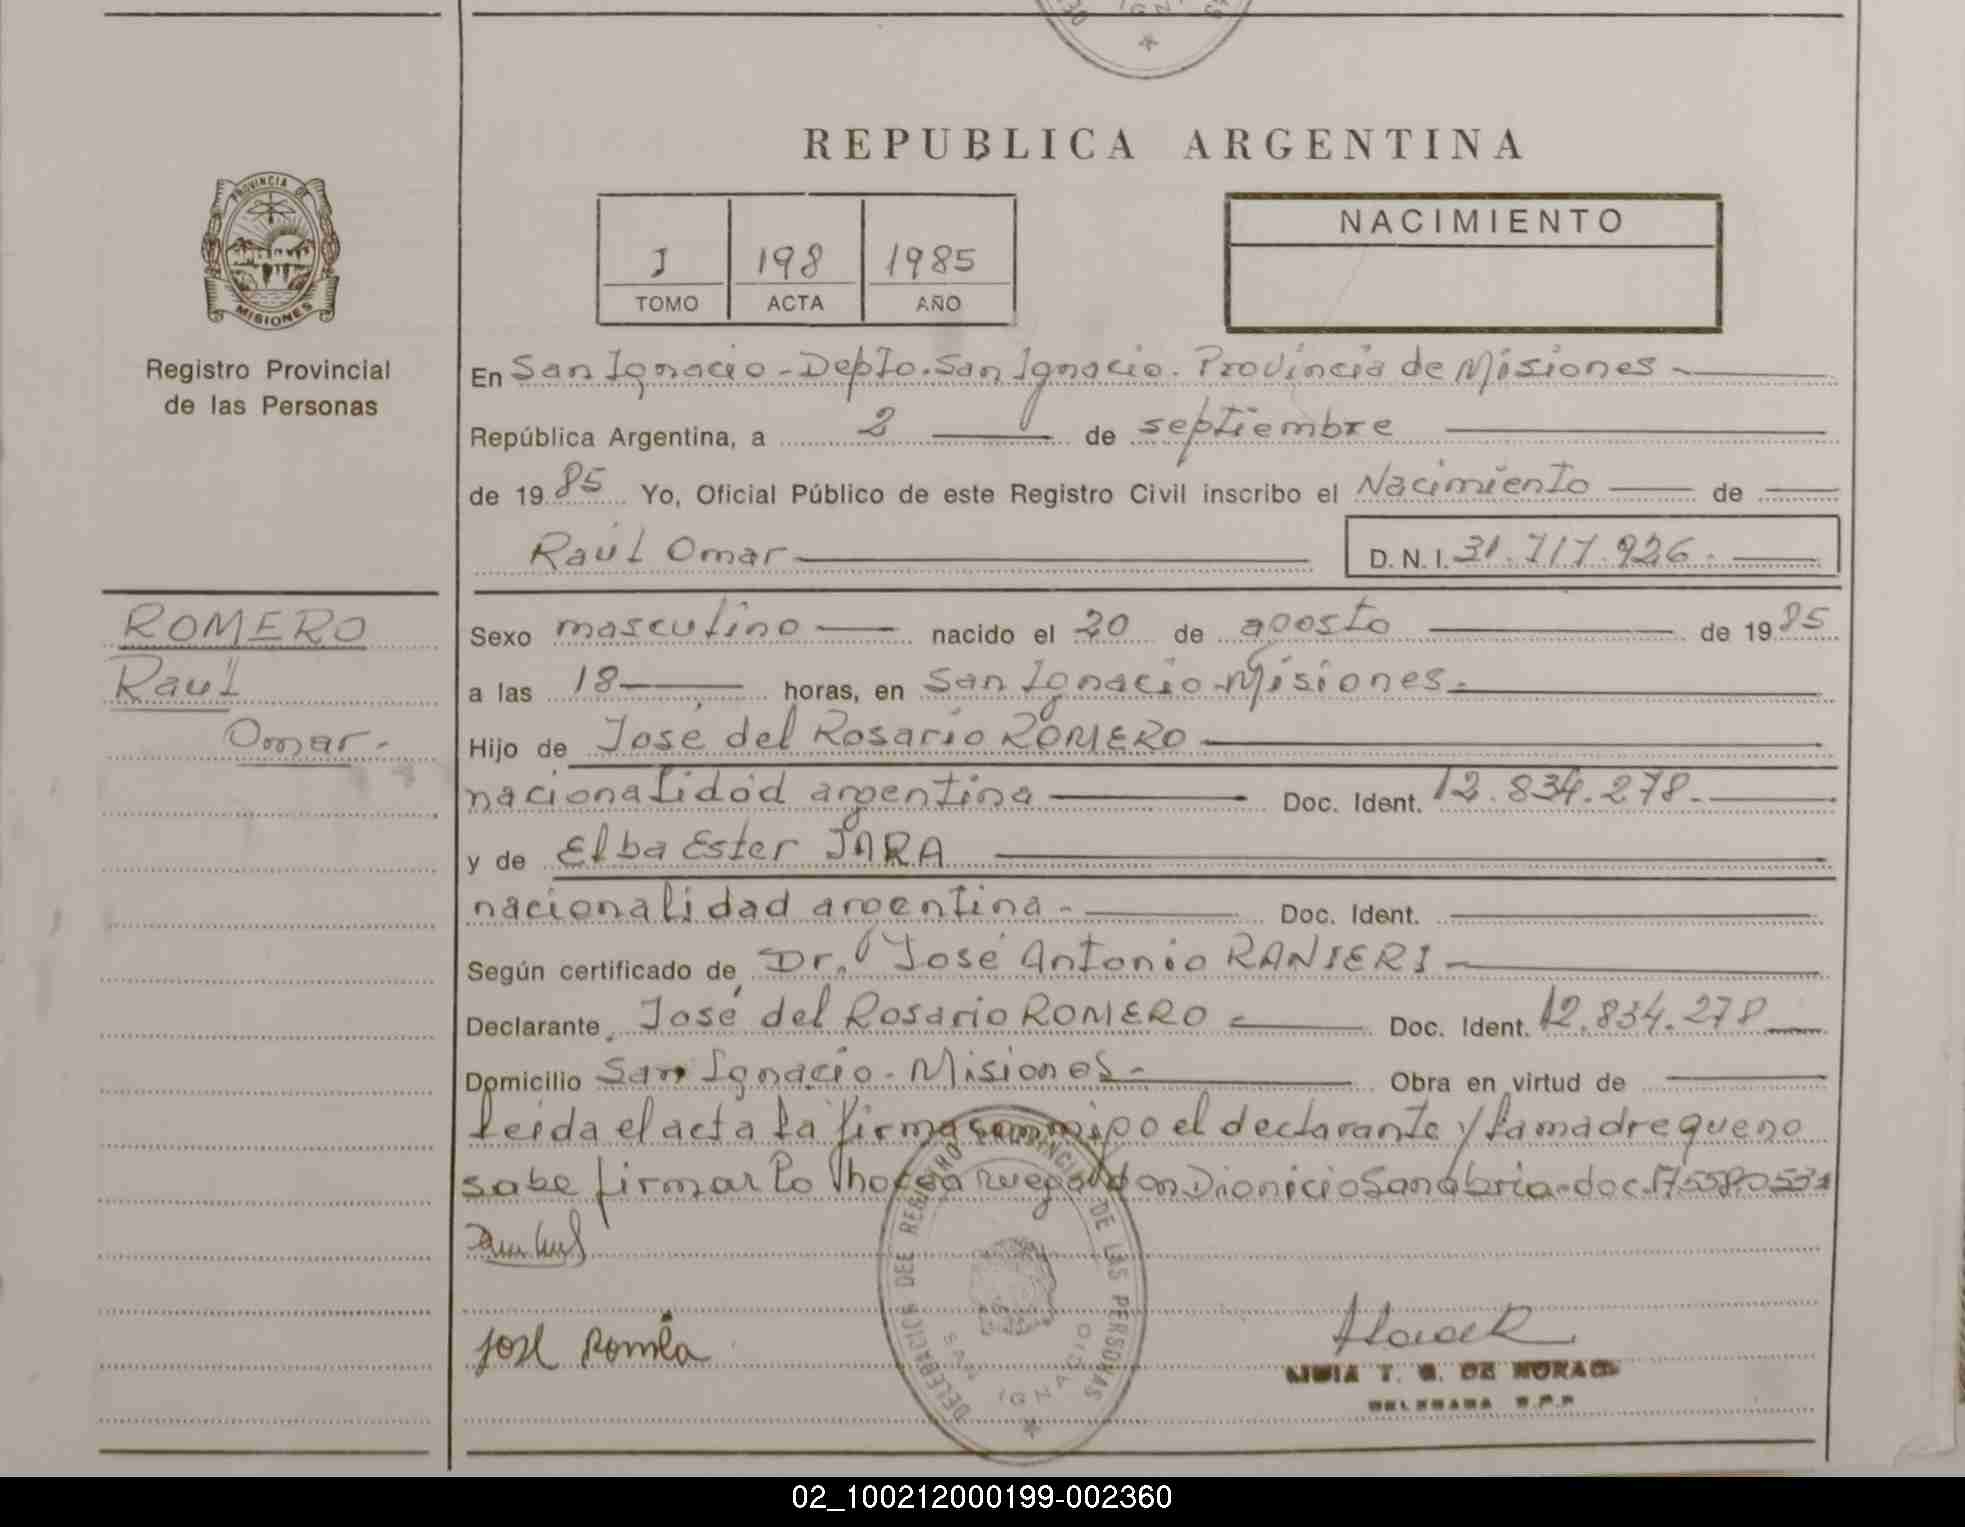 REPUBLICA ARGENTINA
PROVINCIA DE
MISIONES
Registro Provincial
de las Personas
I 198 1985
TOMO ACTA AÑO
NACIMIENTO
En San Ignacio - Depto. San Ignacio. Provincia de Misiones
República Argentina, a 2 de septiembre
de 1985 Yo, Oficial Público de este Registro Civil inscribo el Nacimiento de
Raúl Omar D.N.I. 31.717.926.
ROMERO
Raúl
Omar.-
Sexo masculino nacido el 20 de agosto de 1985
a las 18 horas, en San Ignacio-Misiones.
Hijo de José del Rosario ROMERO
nacionalidad argentina Doc. Ident. 12.834.278.
y de Elba Ester JARA
nacionalidad argentina - Doc. Ident.
Según certificado de Dr. José Antonio RANIERI
Declarante José del Rosario ROMERO Doc. Ident. 12.834.278
Domicilio San Ignacio - Misiones - Obra en virtud de
Leida el acta la firma conmigo el declarante y la madre que no
sabe firmar lo hace a ruego don Dionicio Sanabria - doc.
José
DEL REGISTRO PROVINCIAL DE LAS PERSONAS
SAN IGNACIO
T. G. DE
DELEGADA R.P.P
02_100212000199-002360